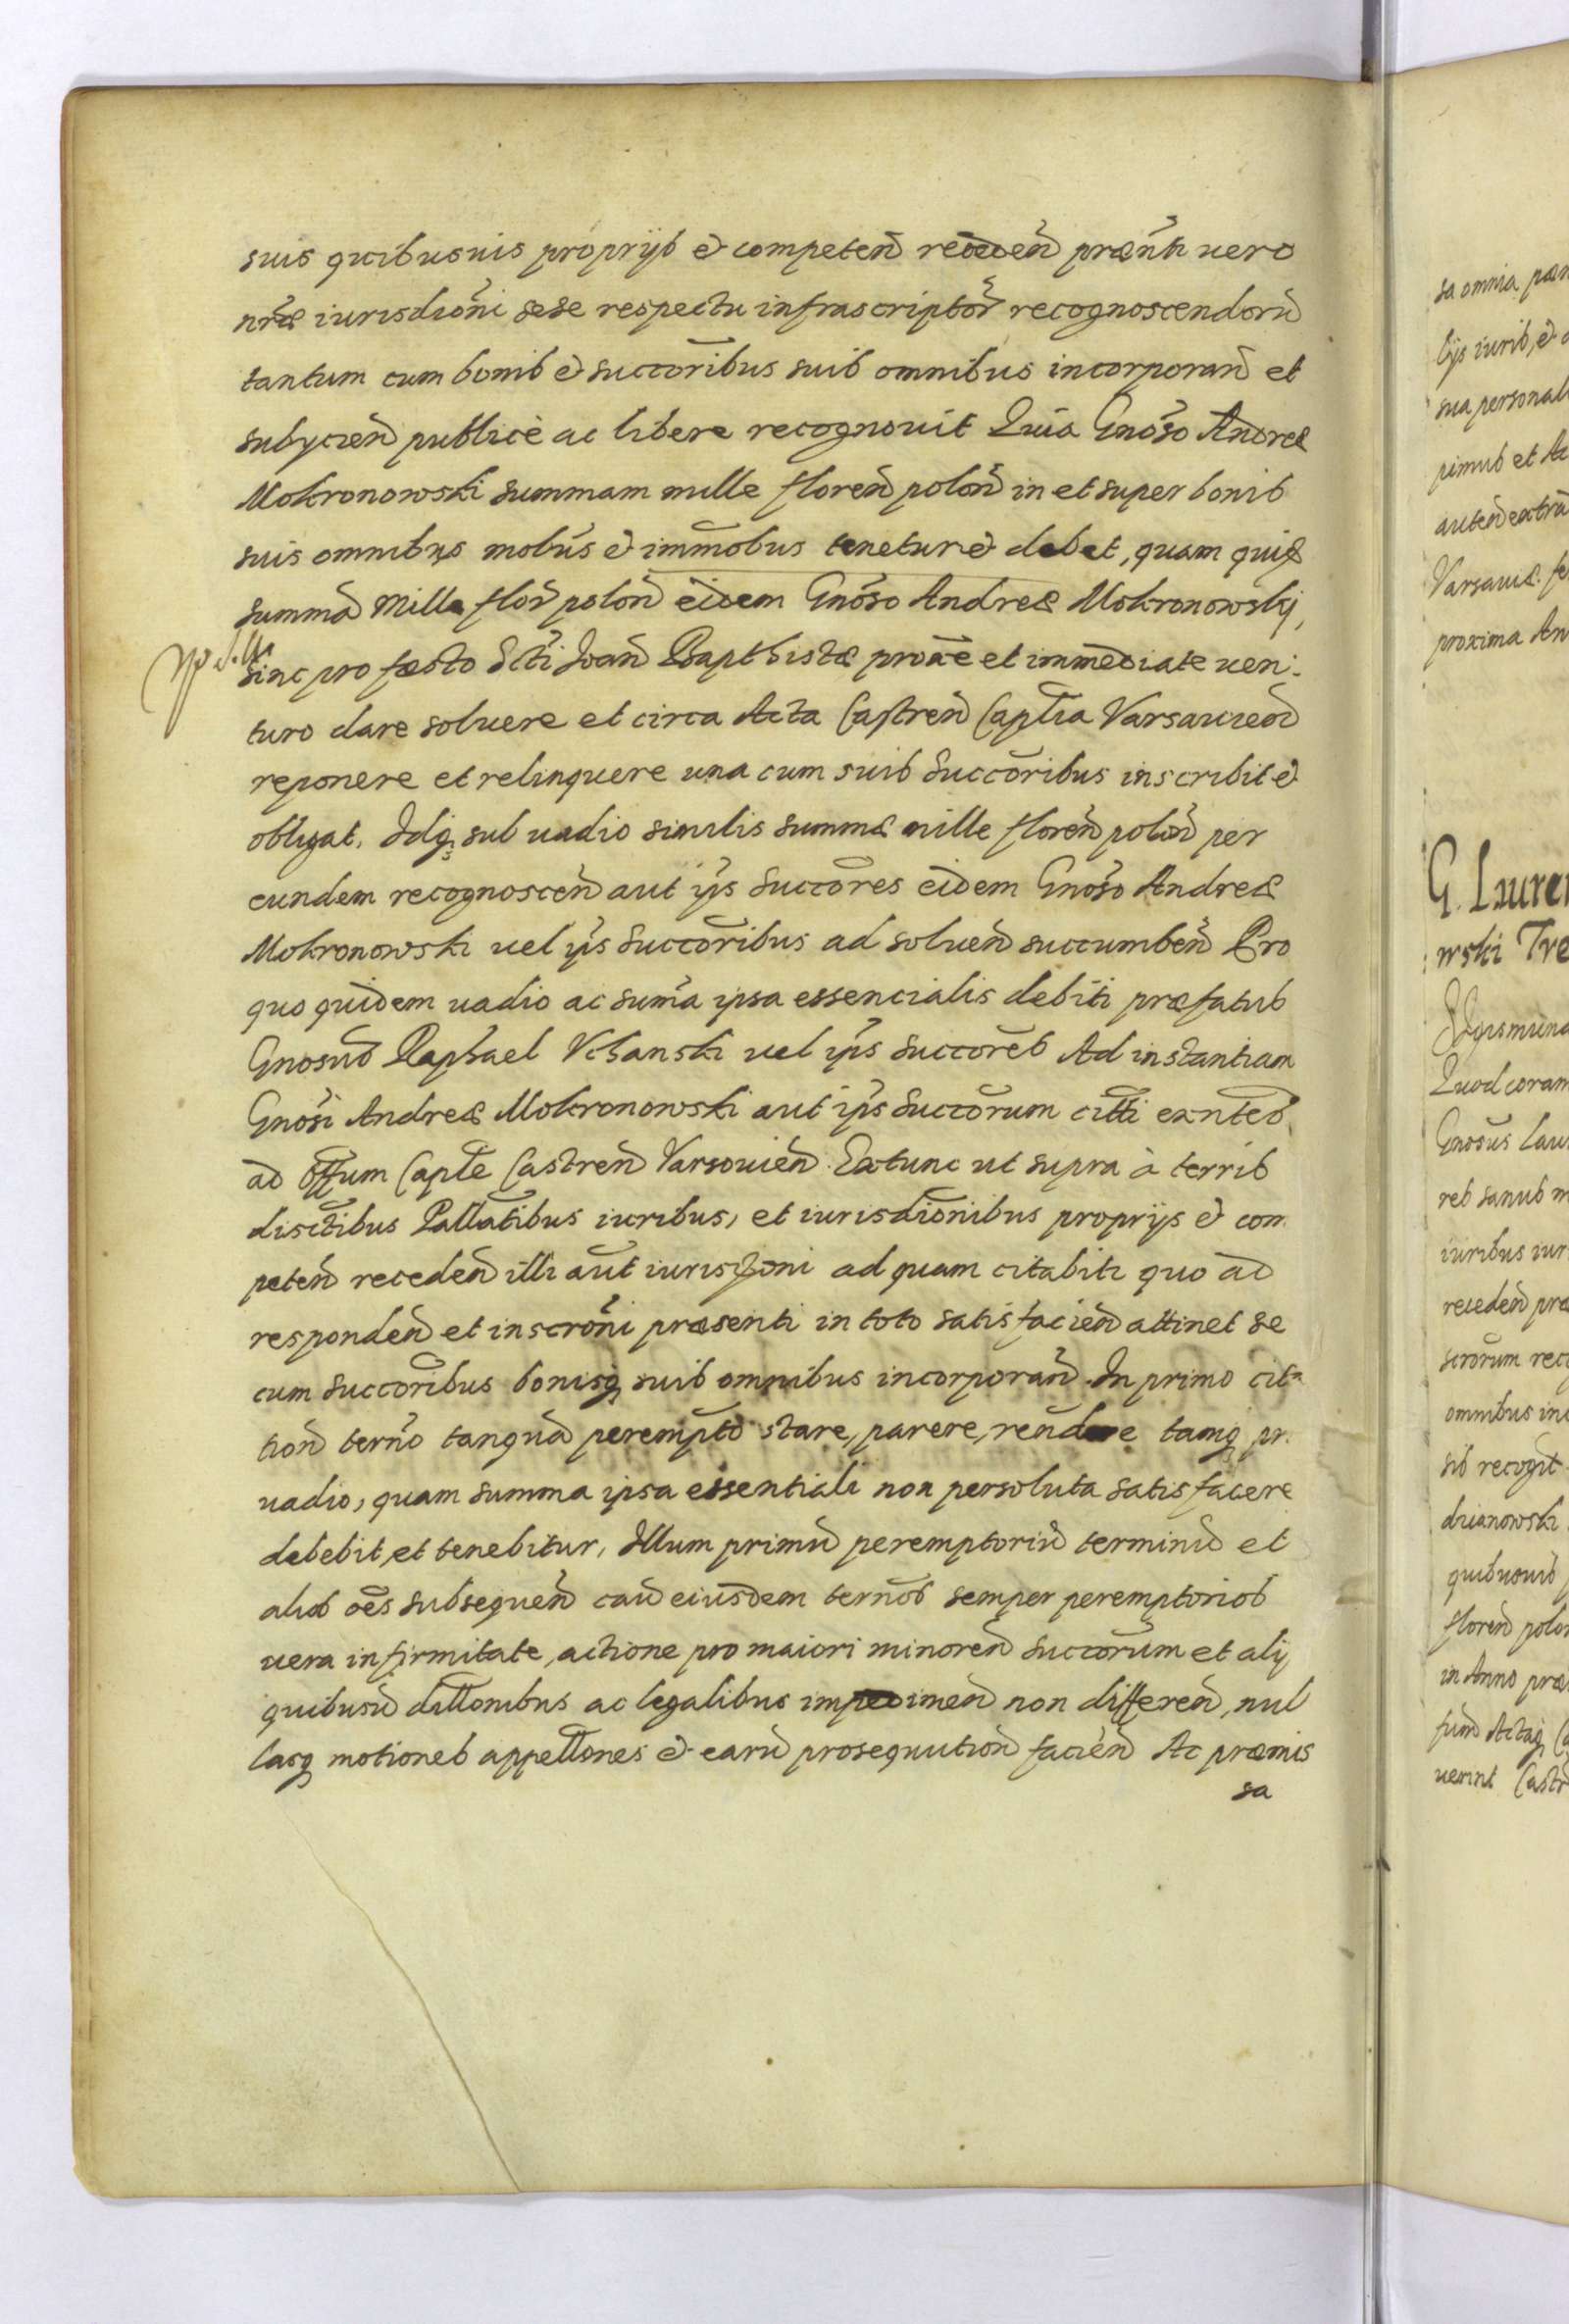 suis quibusuis proprijs et competeñ recedeñ præñti vero
nr̃æ iurisdioñi sese respectu infrascriptor̃ recognoscendorũ
tantum cum bonis et succor̃ibus suis omnibus incorporañ et
subijcieñ publice ac libere recognouit Quia Gnoso Andreæ
Mokronowski summam mille floreñ poloñ in et super bonis
suis omnibus mobũs et imm̃obus tenetur et debet, quam quid̃
summã mille flor̃ poloñ eidem Gnoso Andreæ Mokronowskj,
hinc pro festo Scti Joañ Baptistæ prox̃e et immediate uen:
turo dare soluere et circa Acta Castreñ Capt̃lia Varsauieñ
reponere et relinquere una cum suis succor̃ibus inscribit et
obligat. Idq; sub uadio similis summæ mille floreñ poloñ per
eundem recognosceñ aut ip̃s succor̃es eidem Gnoso Andreæ
Mokronowski uel ip̃s succor̃ibus ad solueñ succumbeñ Pro
quo quidem uadio ac sum̃a ipsa essencialis debiti præfatus
Gnosus Raphael Vchanski uel ip̃s succor̃es Ad instantiam
Gnosi Andreæ Mokronowski aut ip̃s succor̃um citti exñtes
ad Off̃um Capt̃le Castreñ Varsouieñ. Extunc ut supra à terris
disct̃ibus Pallat̃ibus iuribus, et iurisdic̃onibus proprijs et com
peteñ recedeñ illi aut̃ iurisd̃oni ad quam citabit̃r quo ad
respondeñ et inscrõni præsenti in toto satisfacieñ attinet se
cum succor̃ibus bonisq; suis omnibus incorporañ. In primo cita
tioñ terño tanquã perempt̃o stare, parere, reñdere tamq; pr.
uadio, quam summa ipsa essentiali non persoluta satisfacere
debebit, et tenebitur, Illum primũ peremptoriũ terminũ et
alios oẽs subsequeñ cañ eiusdem terños semper peremptorios
uera infirmitate, actione pro maiori minoreñ succor̃um et alij
quibusũ dillonibus ac legalibus impedimeñ non differeñ, nul
lasq; motiones appellones et earũ prosequutioñ facieñ Ac præmis
sa
sa omnia
lijs iurib, et
sua personal
pimus et Ac
auteñ extra
Varsauiæ. fe
proxima An
G. Laure
wski Tre
Sigismund
Quod coram
Gnosus Lau
res sanus m
iuribus iur
recedeñ præ
scrorum reco
omnibus inc
sis recogit
drianowski
quibusuis
floreñ polo
in Anno præ
sum̃ Actaq;
uerint Castr